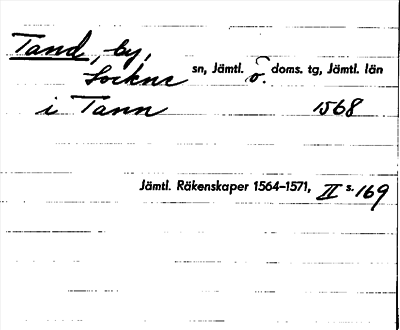 Tand, by,
Lockne sn, Jämtl. ö. doms. tg, Jämtl. län
i Tann 1568
Jämtl. Räkenskaper 1564–1571, II s. 169